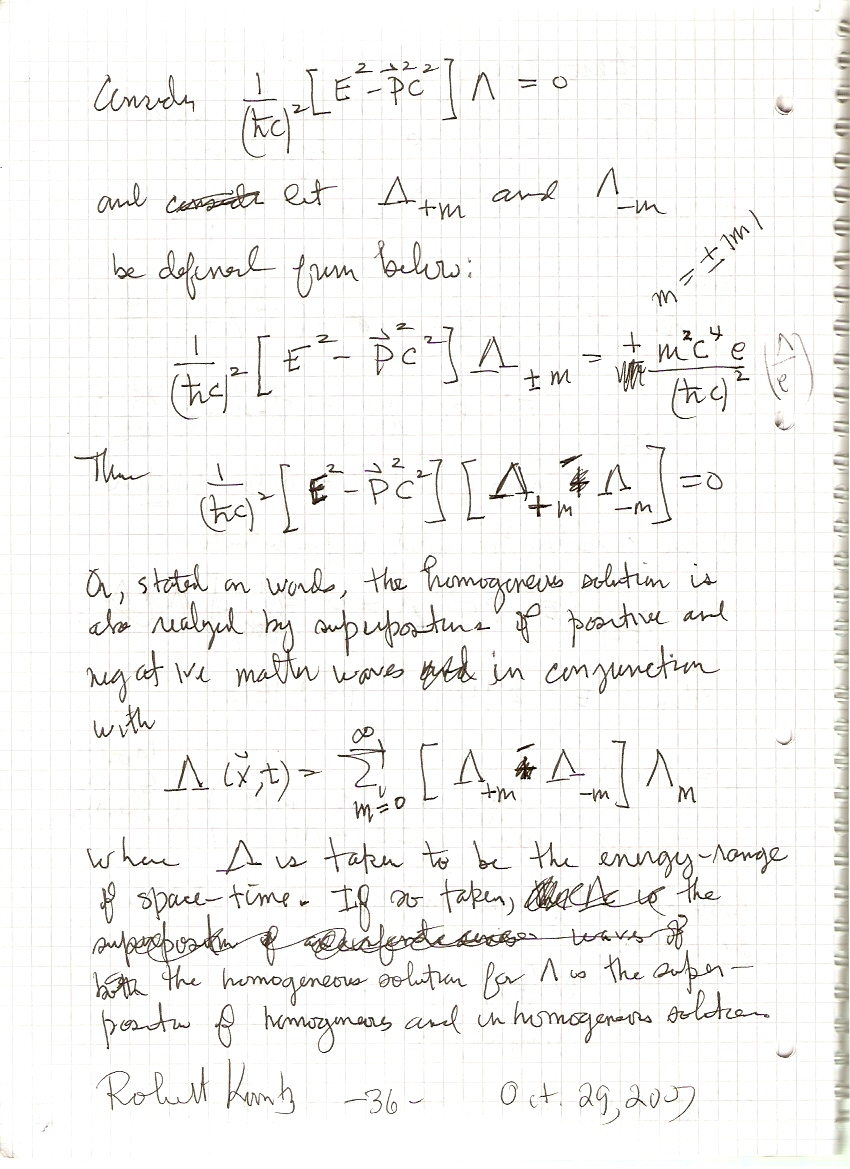 Consider 1/(ħc)² [E² - P⃗²c²] Λ = 0
and let Λ₊ₘ and Λ₋ₘ
be defined from below:
m = ±|m|
1/(ħc)² [E² - P⃗²c²] Λ±ₘ = ± m²c⁴e/(ħc)² (Λ/e)
Then 1/(ħc)² [E² - P⃗²c²] [Λ₊ₘ - Λ₋ₘ] = 0
Or, stated in words, the homogeneous solution is
also realized by superpositions of positive and
negative matter waves in conjunction
with
Λ(x̌,t) = ∑ₘ₌₀^∞ [Λ₊ₘ - Λ₋ₘ] Λₘ
where Λ is taken to be the energy-range
of space-time. If so taken, the
the homogeneous solution for Λ is the super-
position of homogeneous and inhomogeneous solutions
Robert Kuntz -36- Oct. 29, 2007